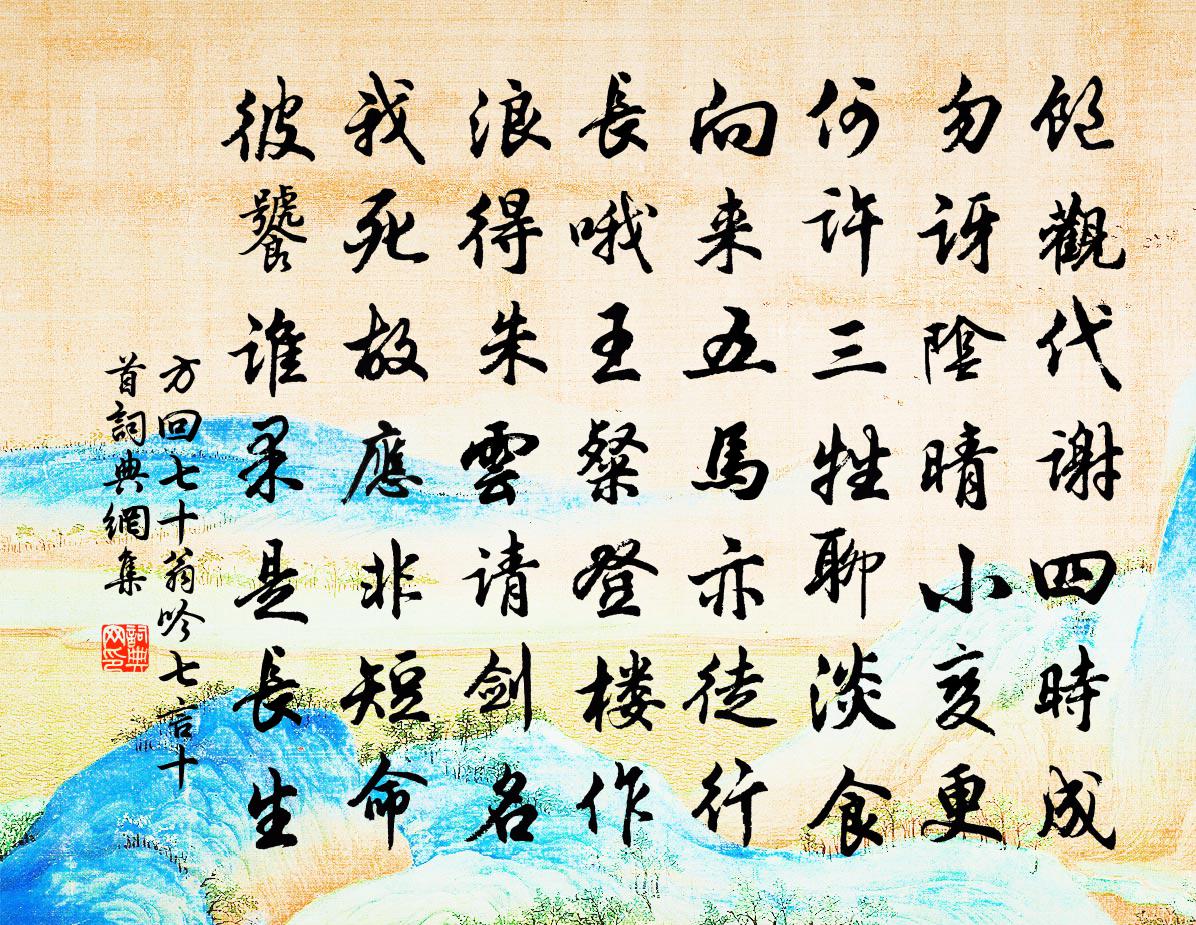 飽觀代謝四時成
勿訝陰晴小变更
何許三牲聊淡食
向来五馬亦徒行
長哦王粲登楼作
浪得朱雲请剑名
我死故應非短命
彼饕誰果是長生
方回七十翁吟七言十
首詞典網集
詞典网印